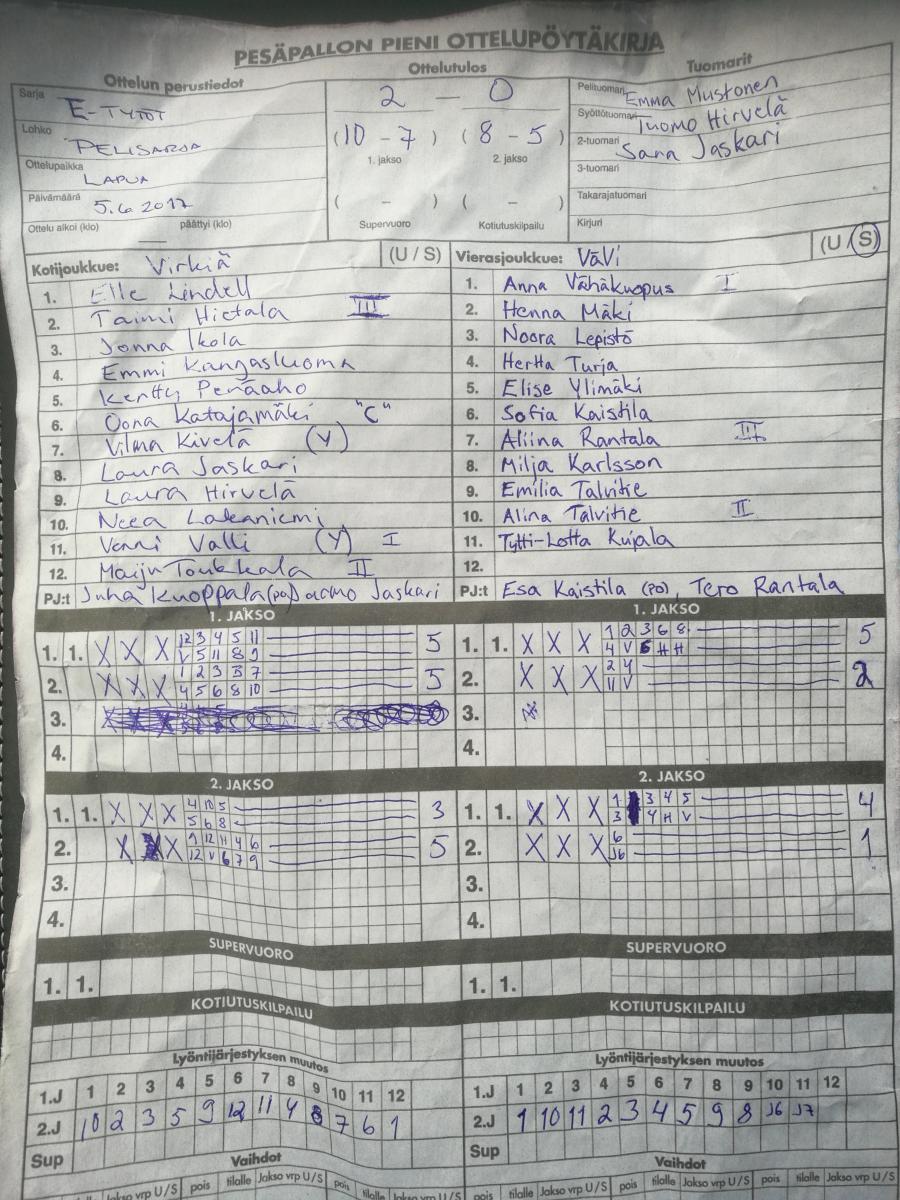 PESÄPALLON PIENI OTTELUPÖYTÄKIRJA
Ottelun perustiedot
Sarja E-TYTÖT
Lohko PELISARJA
Ottelupaikka LAPUA
Päivämäärä 5.6.2017
Ottelu alkoi (klo) — päättyi (klo)
Ottelutulos
2 — 0
(10 - 7) (8 - 5)
1. jakso 2. jakso
( - ) ( - )
Supervuoro Kotiutuskilpailu
Tuomarit
Pelituomari Emma Mustonen
Syöttötuomari Tuomo Hirvelä
2-tuomari Sara Jaskari
3-tuomari
Takarajatuomari
Kirjuri
Kotijoukkue: Virkiä (U / S)
1. Elle Lindell
2. Taimi Hietala III
3. Jonna Ikola
4. Emmi Kangasluoma
5. Kerttu Peräaho
6. Oona Katajamäki "C"
7. Vilma Kivelä (V)
8. Laura Jaskari
9. Laura Hirvelä
10. Neea Lakaniemi
11. Venni Valli (V) I
12. Maiju Toukkala II
PJ:t Juha Kuoppala (PO) Jaskari
Vierasjoukkue: VäVi (U / S)
1. Anna Vähäkuopus I
2. Henna Mäki
3. Noora Lepistö
4. Hertta Turja
5. Elise Ylimäki
6. Sofia Kaistila
7. Aliina Rantala III
8. Milja Karlsson
9. Emilia Talvitie
10. Alina Talvitie II
11. Tytti-Lotta Kujala
12.
PJ:t Esa Kaistila (PO), Tero Rantala
1. JAKSO
1. 1. X X X 12 3 4 5 11 5
V 5 11 8 9
2. X X X 1 2 3 3 7 5
4 5 6 8 10
3.
4.
1. JAKSO
1. 1. X X X 1 2 3 6 8 5
4 V 6 H H
2. X X X 2 4 2
11 V
3.
4.
2. JAKSO
1. 1. X X X 4 10 5 3
5 6 8
2. X X X 9 12 11 4 6 5
12 V 6 7 9
3.
4.
2. JAKSO
1. 1. X X X 1 3 4 5 4
3 4 H V
2. X X X 6 1
J6
3.
4.
SUPERVUORO
1. 1.
SUPERVUORO
1. 1.
KOTIUTUSKILPAILU
KOTIUTUSKILPAILU
Lyöntijärjestyksen muutos
1.J 1 2 3 4 5 6 7 8 9 10 11 12
2.J 10 2 3 5 9 12 11 4 8 7 6 1
Sup
Lyöntijärjestyksen muutos
1.J 1 2 3 4 5 6 7 8 9 10 11 12
2.J 1 10 11 2 3 4 5 9 8 J6 J7
Sup
Vaihdot
pois tilalle Jakso vrp U/S pois tilalle Jakso vrp U/S
Vaihdot
pois tilalle Jakso vrp U/S pois tilalle Jakso vrp U/S